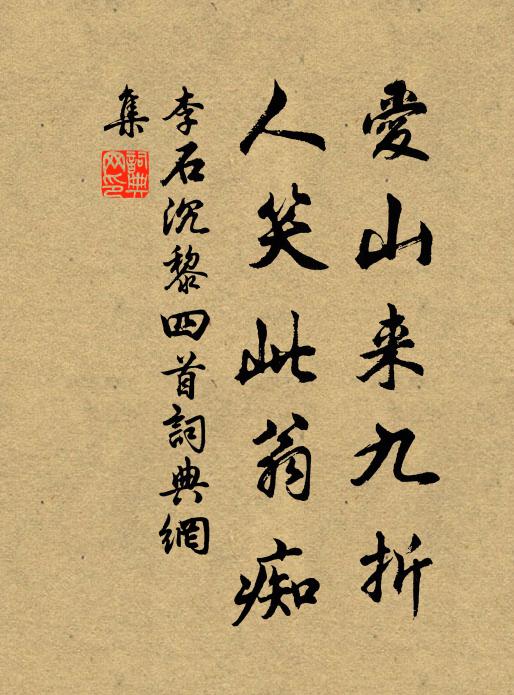 愛山来九折
人笑此翁痴
李石沉黎四首詞典網
集
詞典網印